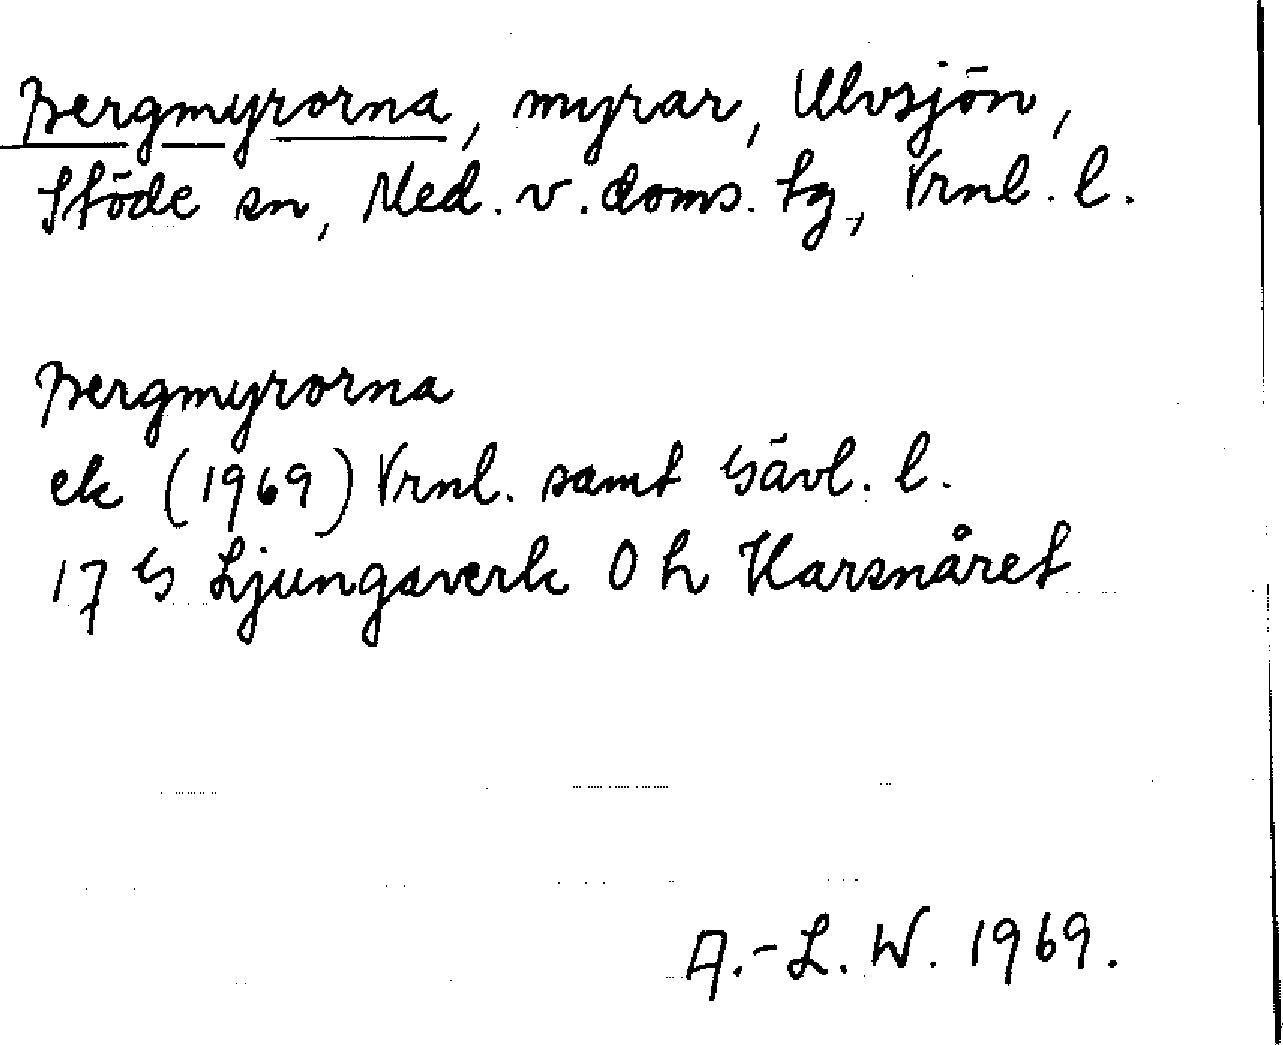 Bergmyrorna, myrar, Ulvsjön,
Stöde sn, Med. v. doms. tg, Vrnl. l.
Bergmyrorna
ek (1969) Vrnl. samt Gävl. l.
17 G Ljungaverk 0 h Karsnåret
A.-L. W. 1969.